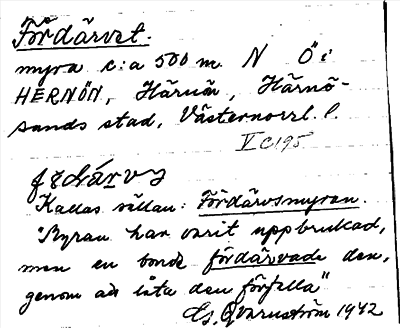 Fördärvet.
myra c:a 500 m. N Ö i
HERNÖN, Härnön, Härnö-
sands stad, Västernorrl. l.
V C 195
Kallas sällan: Fördärvsmyran.
"Myran har varit uppbrukad,
men en bonde fördärvade den,
genom att låta den förfalla"
Qvarnström 1942